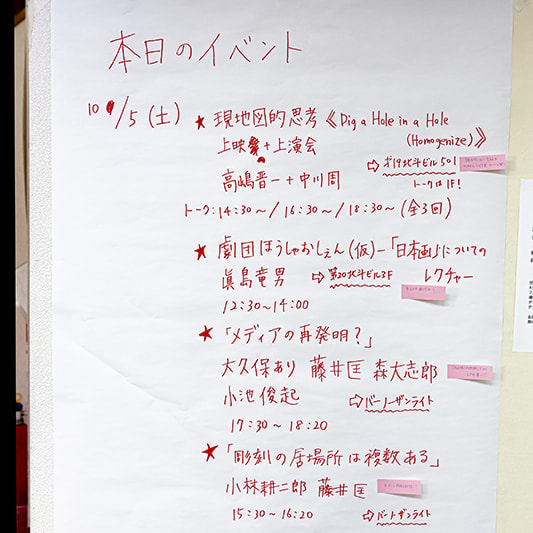 本日のイベント
10/5(土)
★ 現地図的思考《Dig a Hole in a Hole
(Homogenize)》
上映 + 上演会
⇨ 第19北斗ビル501
高嶋晋一 + 中川周
トークは1F!
トーク:14:30〜/16:30〜/18:30〜(全3回)
★ 劇団ほうしゃおしぇん(仮)-「日本画」についての
レクチャー
眞島竜男 ⇨ 第20北斗ビル3F
12:30〜14:00
★「メディアの再発明?」
大久保あり 藤井匡 森大志郎
小池俊起 ⇨ バーノーザンライト
17:30〜18:20
★「彫刻の居場所は複数ある」
小林耕二郎 藤井匡
15:30〜16:20